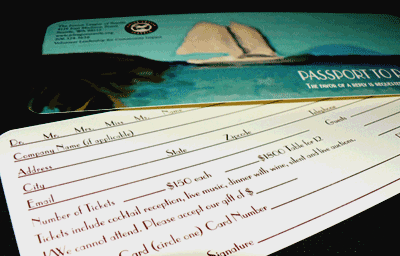 The Junior League of Seattle
Seattle, WA 98112
Volunteers Leadership for Community Impact
PASSPORT TO
THE FAVOR OF A REPLY IS REQUESTED
Dr. Mr. Mrs. Miss Ms. Name
Company Name (if applicable)
Address
City State Zipcode Telephone
Email
Number of Tickets $150 each $1800 Table for 12. Guests
Tickets include cocktail reception, live music, dinner with wine, silent and live auctions.
I/We cannot attend. Please accept our gift of $
Card (circle one) Card Number
Signature